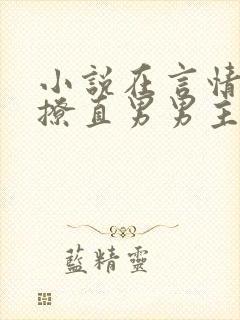 小說在言情
撩直男男主
藍精靈